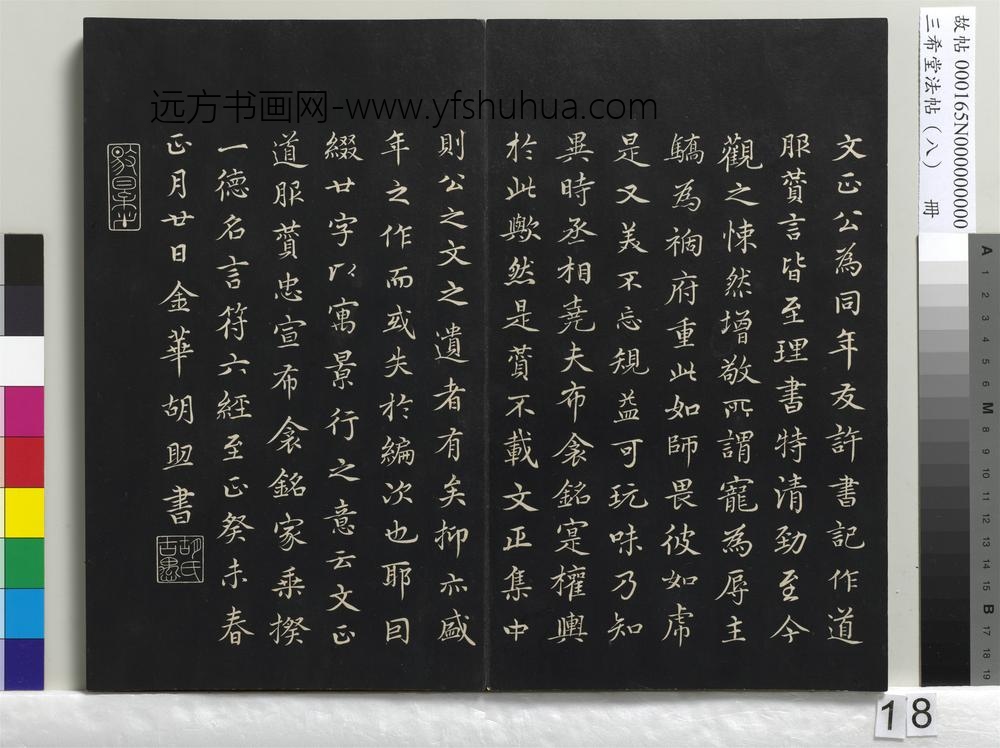 文正公為同年友許書記作道
服贊言皆至理書特清勁至今
觀之悚然增敬所謂寵為辱主
驕為禍府重此如師畏彼如虎
是又美不忘規益可玩味乃知
異時丞相堯夫布衾銘寔權輿
於此歟然是贊不載文正集中
則公之文之遺者有矣抑亦盛
年之作而或失於編次也耶因
綴廿字以寓景行之意云文正
道服贊忠宣布衾銘家乘揆
一德名言符六經至正癸未春
正月廿日金華胡助書
胡氏古愚
远方书画网-www.yfshuhua.com
故帖 000165N000000000
三希堂法帖(八) 冊
A 1 2 3 4 5 6 M 8 9 10 11 12 13 14 15 B 17 18 19
18